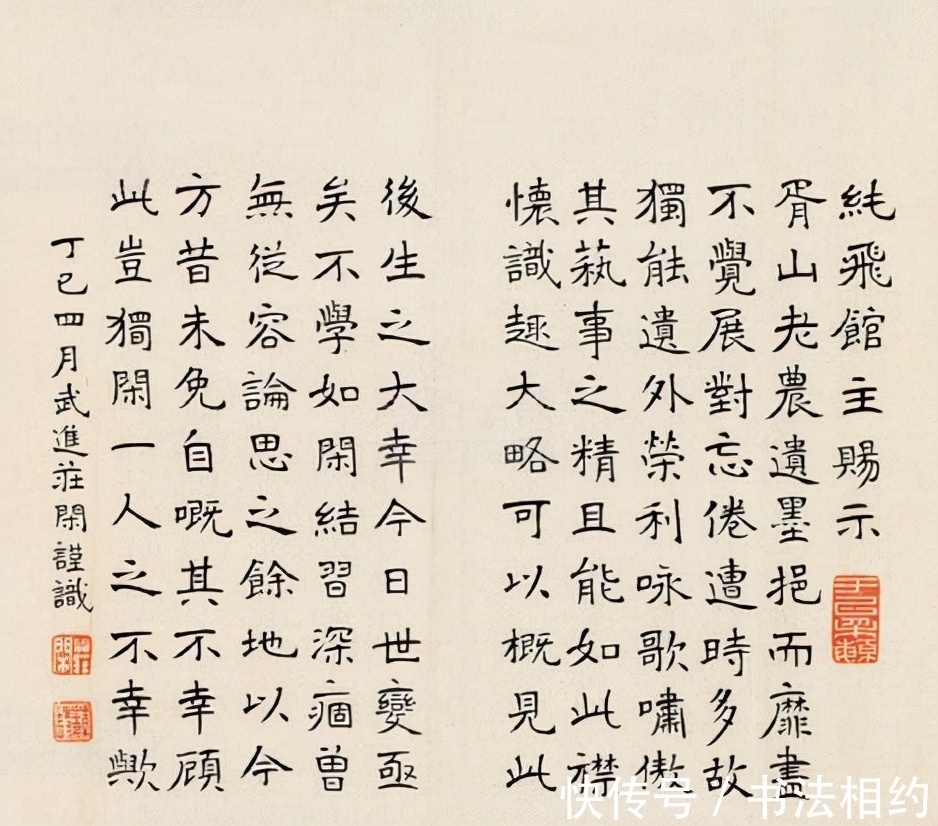 純飛館主賜示
胥山老農遺墨挹而靡盡
不覺展對忘倦遭時多故
獨能遺外榮利咏歌嘯傲
其蓺事之精且能如此襟
懷識趣大略可以概見此
後生之大幸今日世變亟
矣不學如閑結習深痼曽
無從容論思之餘地以今
方昔未免自嘅其不幸顧
此豈獨閑一人之不幸歟
丁巳四月武進莊閑謹識
快传号 / 书法相约